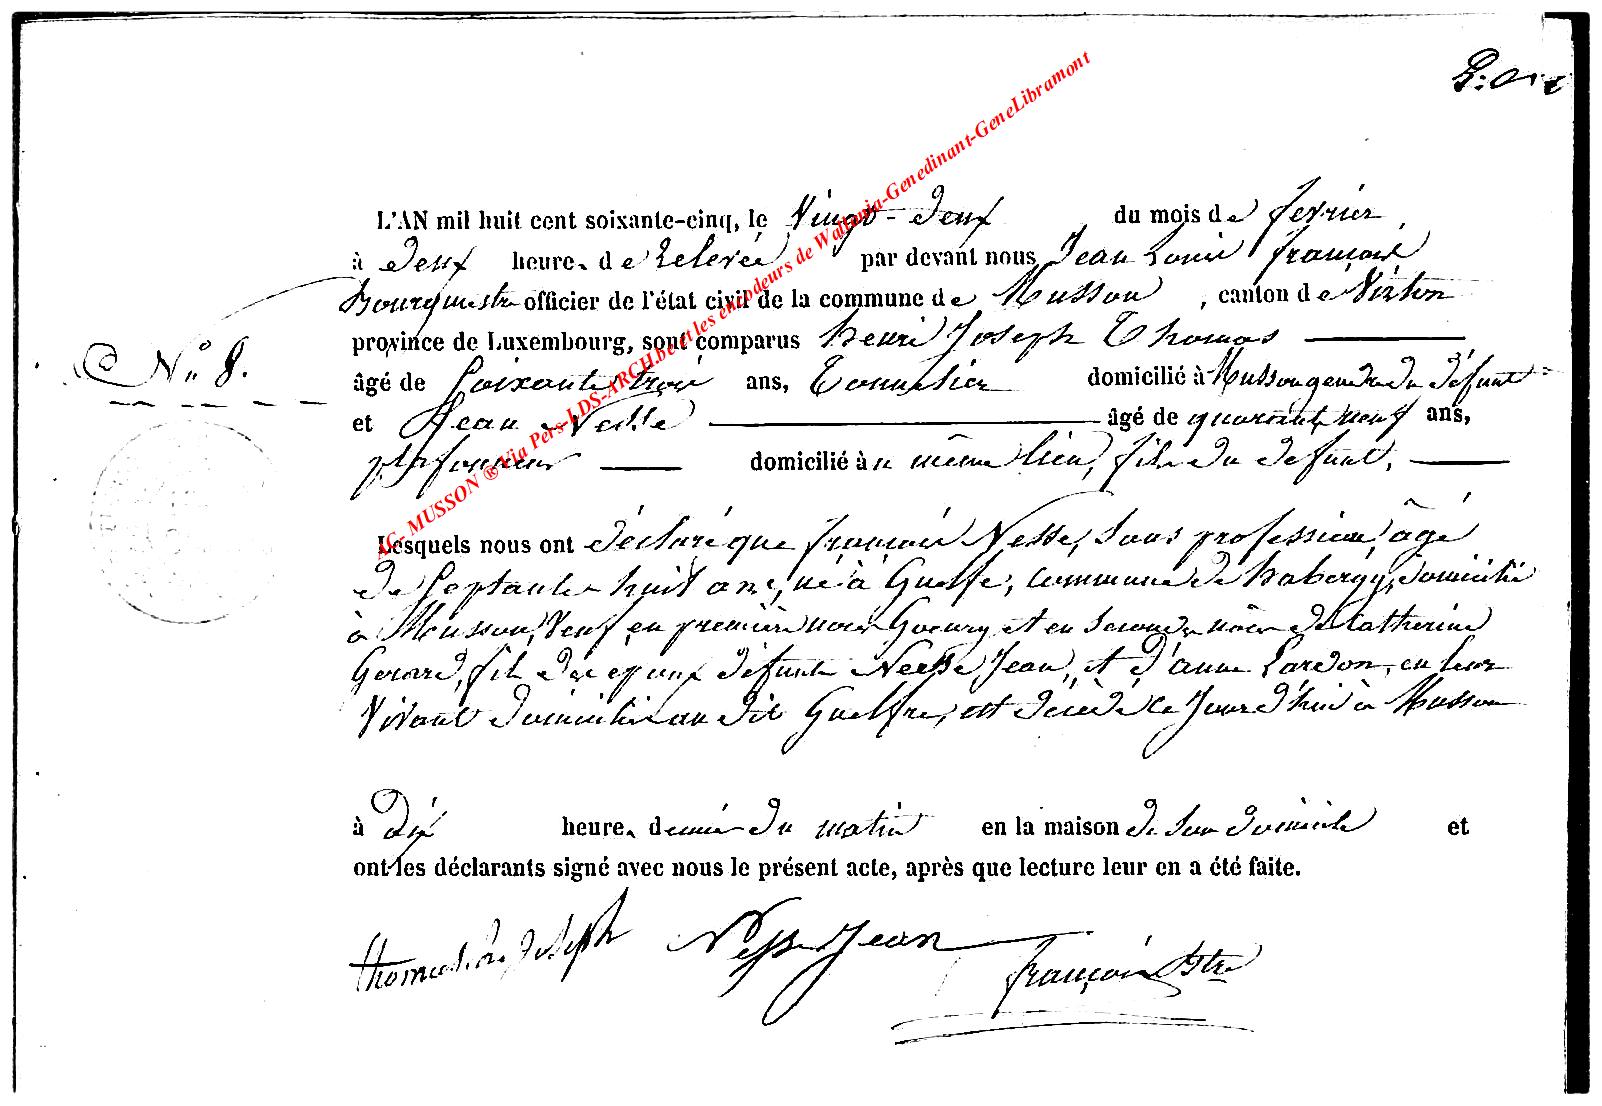 L'AN mil huit cent soixante-cinq, le Vingt-deux du mois de fevrier
à deux heure. de relevée par devant nous Jean Louis françois
Bourgmestre officier de l'état civil de la commune de Musson, canton de Virton
province de Luxembourg, sont comparus henri Joseph Thomas
N° 8.
âgé de Soixante trois ans, Tonnelier domicilié à Musson gendre du défunt
et Jean Nesse âgé de quarante neuf ans,
plafonneur domicilié à u même lieu, fils du defunt,
AC- MUSSON ® Via Pers-LDS-ARCH.be et les encodeurs de Wallonia-Genedinant-GeneLibramont
Lesquels nous ont déclaré que françois Nesse, sans profession, âgé
de Septante huit ans, né à Guelfe, commune de habergy, domicilié
à Musson, Veuf en première noces Goeury et en seconde noces de Catherine
Gerard, fils des époux défunts Nesse Jean, et d'anne Lardon, en leur
Vivant domiciliés au dit Guelfre, est décédé ce Jourd'hui à Musson
à dix heure. demie du matin en la maison de son domicile et
ont les déclarants signé avec nous le présent acte, après que lecture leur en a été faite.
thomas Joseph Nesse Jean
françois Btre